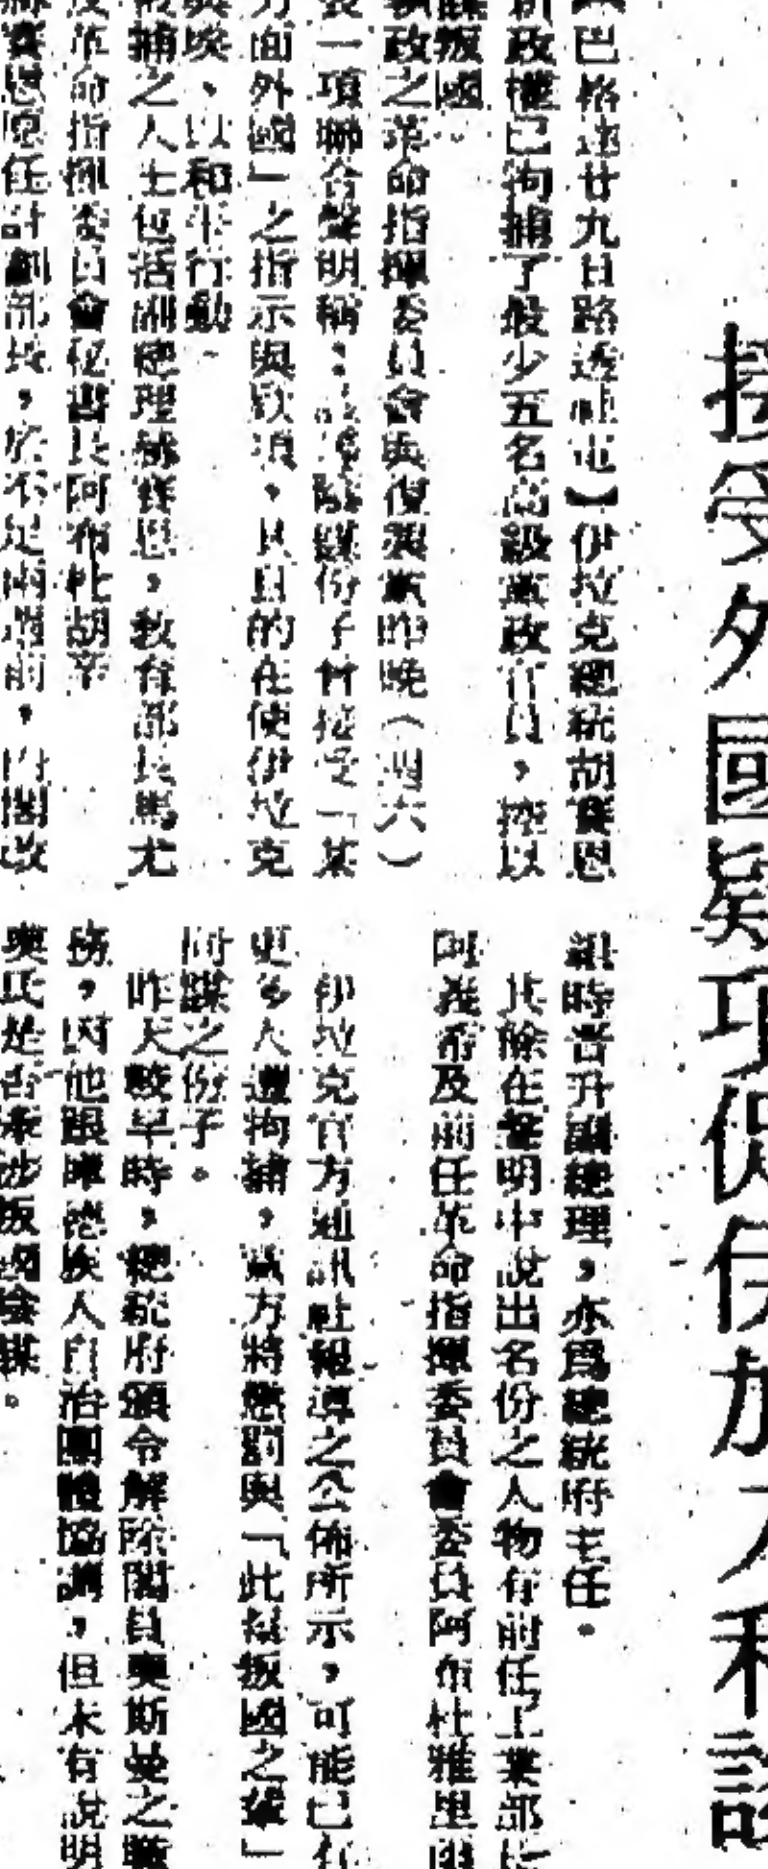 接受外國疑項促伊加入和談
【巴格達廿九日路透社電】伊拉克總統胡賽恩
新政權已拘捕了最少五名高級黨政官員，控以
謀叛國。
執政之革命指揮委員會與復興黨昨晚（週六）
發表一項聯合聲明稱：該等陰謀份子曾接受「某
方面外國」之指示與款項，其目的在使伊拉克
與埃、以和平行動。
被捕之人士包括副總理赫賽恩，教育部長馬尤
及革命指揮委員會秘書長阿布杜胡辛
赫賽恩原任計劃部長，於不足兩週前，內閣改
組時晉升副總理，亦為總統府主任。
其餘在聲明中說出名份之人物有前任工業部長
阿義希及前任革命指揮委員會委員阿布杜雅里
伊拉克官方通訊社報導之公佈所示，可能已有
更多人遭拘捕，黨方將懲罰與「此樁叛國之舉」
同謀之份子。
昨天較早時，總統府頒令解除閣員奧斯曼之職
務，因他跟庫德族人自治團體協調，但未有說明
奧氏是否牽涉叛國陰謀。